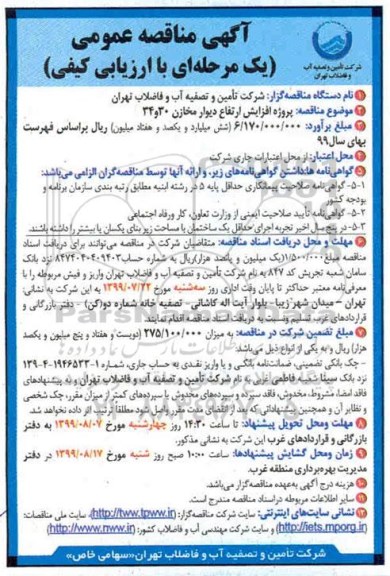 آگهی مناقصه عمومی
(یک مرحله‌ای با ارزیابی کیفی)
شرکت تأمین و تصفیه آب
و فاضلاب تهران
۱ نام دستگاه مناقصه‌گزار: شرکت تأمین و تصفیه آب و فاضلاب تهران
۲ موضوع مناقصه: پروژه افزایش ارتفاع دیوار مخازن ۳۰و۳۴
۳ مبلغ برآورد: ۶/۱۷۰/۰۰۰/۰۰۰ (شش میلیارد و یکصد و هفتاد میلیون) ریال براساس فهرست
بهای سال۹۹
۴ محل اعتبار: از محل اعتبارات جاری شرکت
۵ گواهی‌نامه ها: داشتن گواهی‌نامه‌های زیر، و ارائه آنها توسط مناقصه‌گران الزامی می‌باشد:
۵-۱- گواهی‌نامه صلاحیت پیمانکاری حداقل پایه ۵ در رشته ابنیه مطابق رتبه بندی سازمان برنامه و
بودجه کشور
۵-۲- گواهی‌نامه تأیید صلاحیت ایمنی از وزارت تعاون، کار ورفاه اجتماعی
۵-۳- در پنج سال اخیر تجربه اجرای حداقل یک ساختمان با مساحت زیر بنای یکسان یا بیشتر را داشته باشند.
۶ مهلت و محل دریافت اسناد مناقصه: متقاضیان شرکت در مناقصه می‌توانند برای دریافت اسناد
مناقصه مبلغ ۱/۵۰۰/۰۰۰ (یک میلیون و پانصد هزار) ریال به شماره حساب ۸۴۷۴۰۴۰۴۰۹۴۰۳ نزد بانک
سامان شعبه تجریش کد ۸۴۷ به نام شرکت تأمین و تصفیه آب و فاضلاب تهران واریز و فیش مربوطه را با
معرفی‌نامه معتبر حداکثر تا پایان وقت اداری روز سه‌شنبه مورخ ۱۳۹۹/۰۷/۲۲ به این شرکت به نشانی:
تهران – میدان شهر زیبا- بلوار آیت اله کاشانی- تصفیه خانه شماره دو(کن) - دفتر بازرگانی و
قراردادهای غرب تسلیم ونسبت به دریافت اسناد مناقصه اقدام نمایند.
۷ مبلغ تضمین شرکت در مناقصه: به میزان ۲۷۵/۱۰۰/۰۰۰ (دویست و هفتاد و پنج میلیون و یکصد
هزار) ریال و به یکی از انواع ذیل می‌باشد:
- چک بانکی تضمینی، ضمانت‌نامه بانکی و یا واریز نقدی به حساب جاری، شماره ۱-۱۹۴۶۵۳۳-۴-۱۳۹
نزد بانک سینا شعبه فاطمی غربی به نام شرکت تأمین و تصفیه آب و فاضلاب تهران و به پیشنهادهای
فاقد امضا، مشروط، مخدوش، فاقد سپرده و سپرده‌های مخدوش یا سپرده‌های کمتر از میزان مقرر، چک شخصی
و نظایر آن و همچنین پیشنهاداتی که بعد از انقضای مدت مقرر واصل شود مطلقاً ترتیب اثر داده نخواهد شد.
۸ مهلت ومحل تحویل پیشنهاد: تا ساعت ۱۴:۳۰ روز چهارشنبه مورخ ۱۳۹۹/۰۸/۰۷ به دفتر
بازرگانی و قراردادهای غرب این شرکت به نشانی مذکور.
۹ زمان ومحل گشایش پیشنهادها: ساعت ۱۰:۰۰ صبح روز شنبه مورخ ۱۳۹۹/۰۸/۱۷ در دفتر
مدیریت بهره‌برداری منطقه غرب.
۱۰ هزینه درج آگهی به‌عهده مناقصه‌گزار می‌باشد.
۱۱ سایر اطلاعات مربوطه دراسناد مناقصه مندرج است.
۱۲ نشانی سایت‌های اینترنتی: سایت شرکت: (http://tww.tpww.ir)، سایت ملی مناقصات:
(http://iets.mporg.ir) و سایت شرکت مهندسی آب و فاضلاب کشور: (http://www.nww.ir)
شرکت تأمین و تصفیه آب و فاضلاب تهران«سهامی خاص»